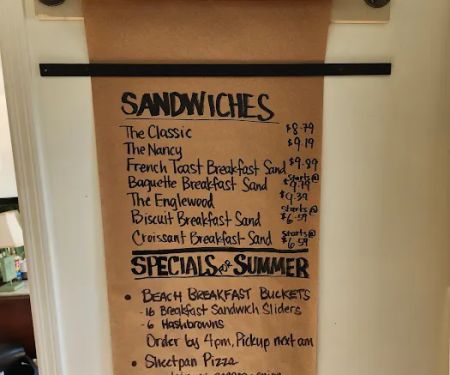 SANDWICHES
The Classic $8.79
The Nancy $9.19
French Toast Breakfast Sand $9.89
Baguette Breakfast Sand starts@ $9.79
The Englewood $9.39
Biscuit Breakfast Sand starts@ $6.59
Croissant Breakfast Sand starts@ $6.59
SPECIALS FOR SUMMER
• BEACH BREAKFAST BUCKETS
- 16 Breakfast Sandwich Sliders
- 6 Hashbrowns
Order by 4pm, Pickup next am
• Sheetpan Pizza